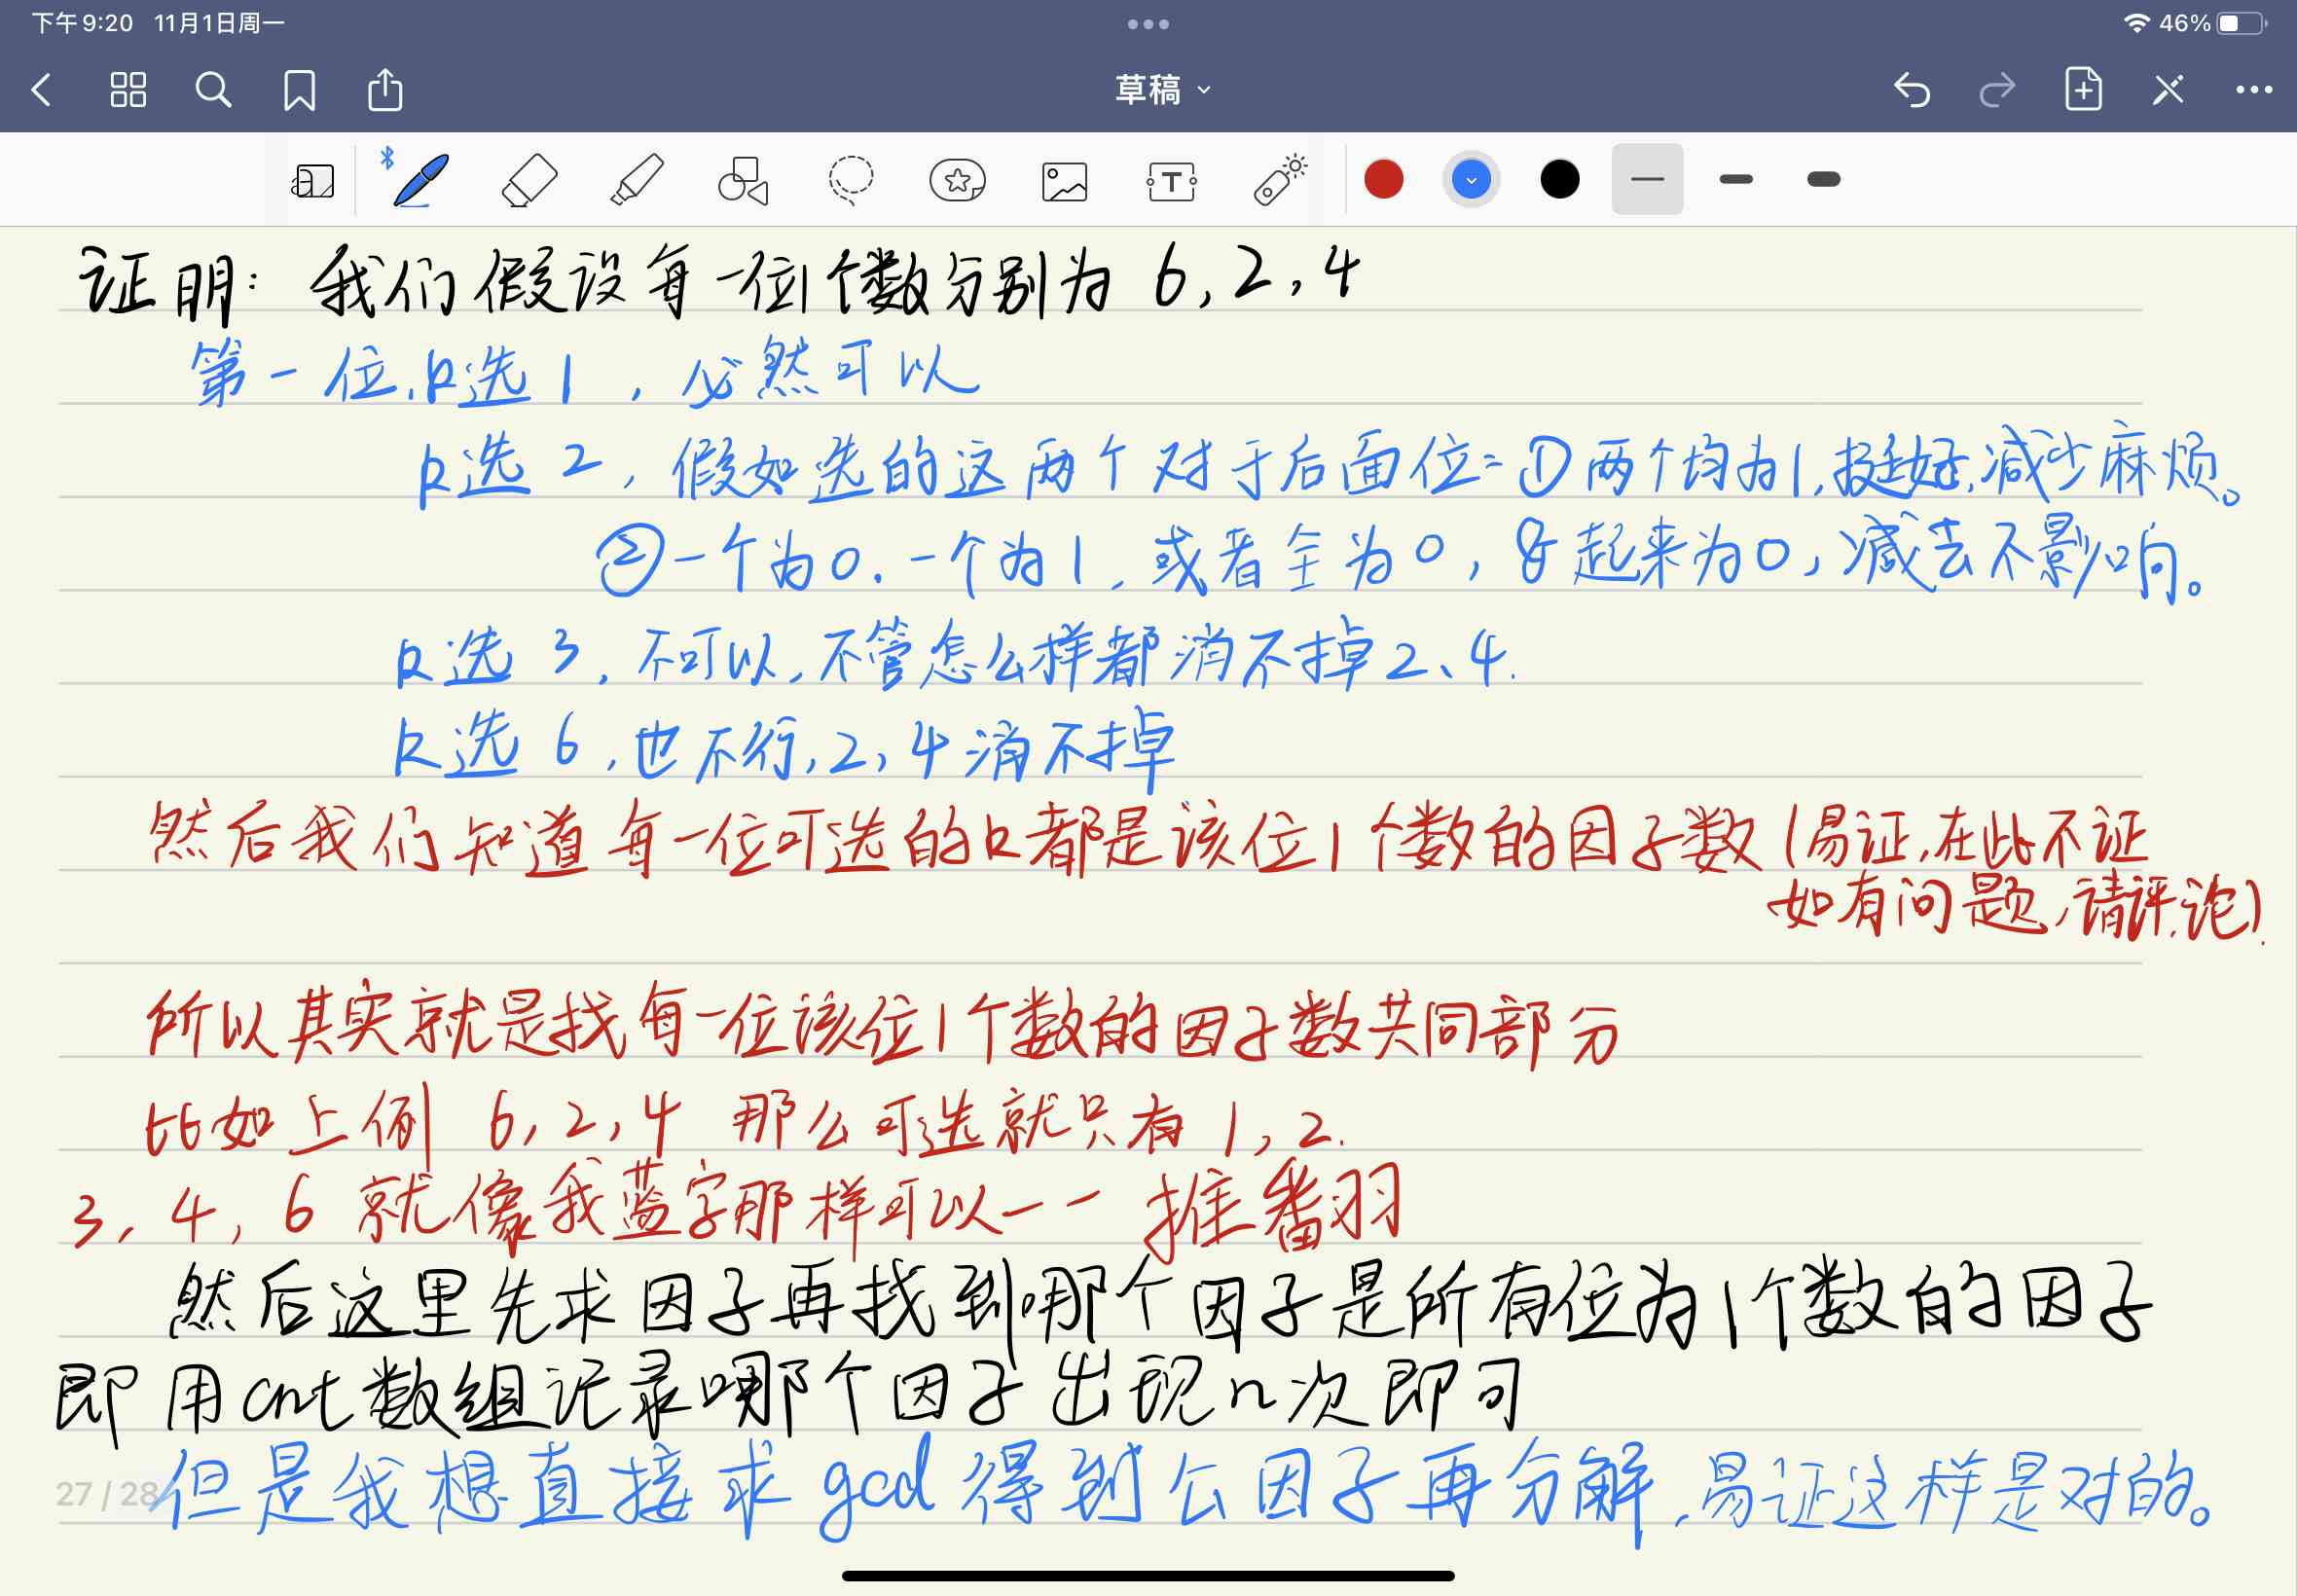 下午9:20 11月1日周一
46%
草稿
证明: 我们假设每一位1个数分别为 6, 2, 4
第一位, k选 1 , 必然可以
k选 2 , 假如选的这两个对于后面位: ① 两个均为1, 挺好, 减少麻烦。
② 一个为0. 一个为1, 或者全为0, &起来为0, 减去不影响。
k选 3, 不可以, 不管怎么样都消不掉2、4.
k选 6 , 也不行, 2, 4 消不掉
然后我们知道每一位可选的k都是该位1个数的因子数 (易证, 在此不证
如有问题, 请评论).
所以其实就是找每一位该位1个数的因子数共同部分
比如上例 6, 2, 4 那么可选就只有 1, 2.
3, 4, 6 就像我蓝字那样可以一一推翻
然后这里先求因子再找到哪个因子是所有位为1个数的因子
即用cnt数组记录哪个因子出现n次即可
27 / 28
但是我想直接求gcd得到公因子再分解, 易证这样是对的。